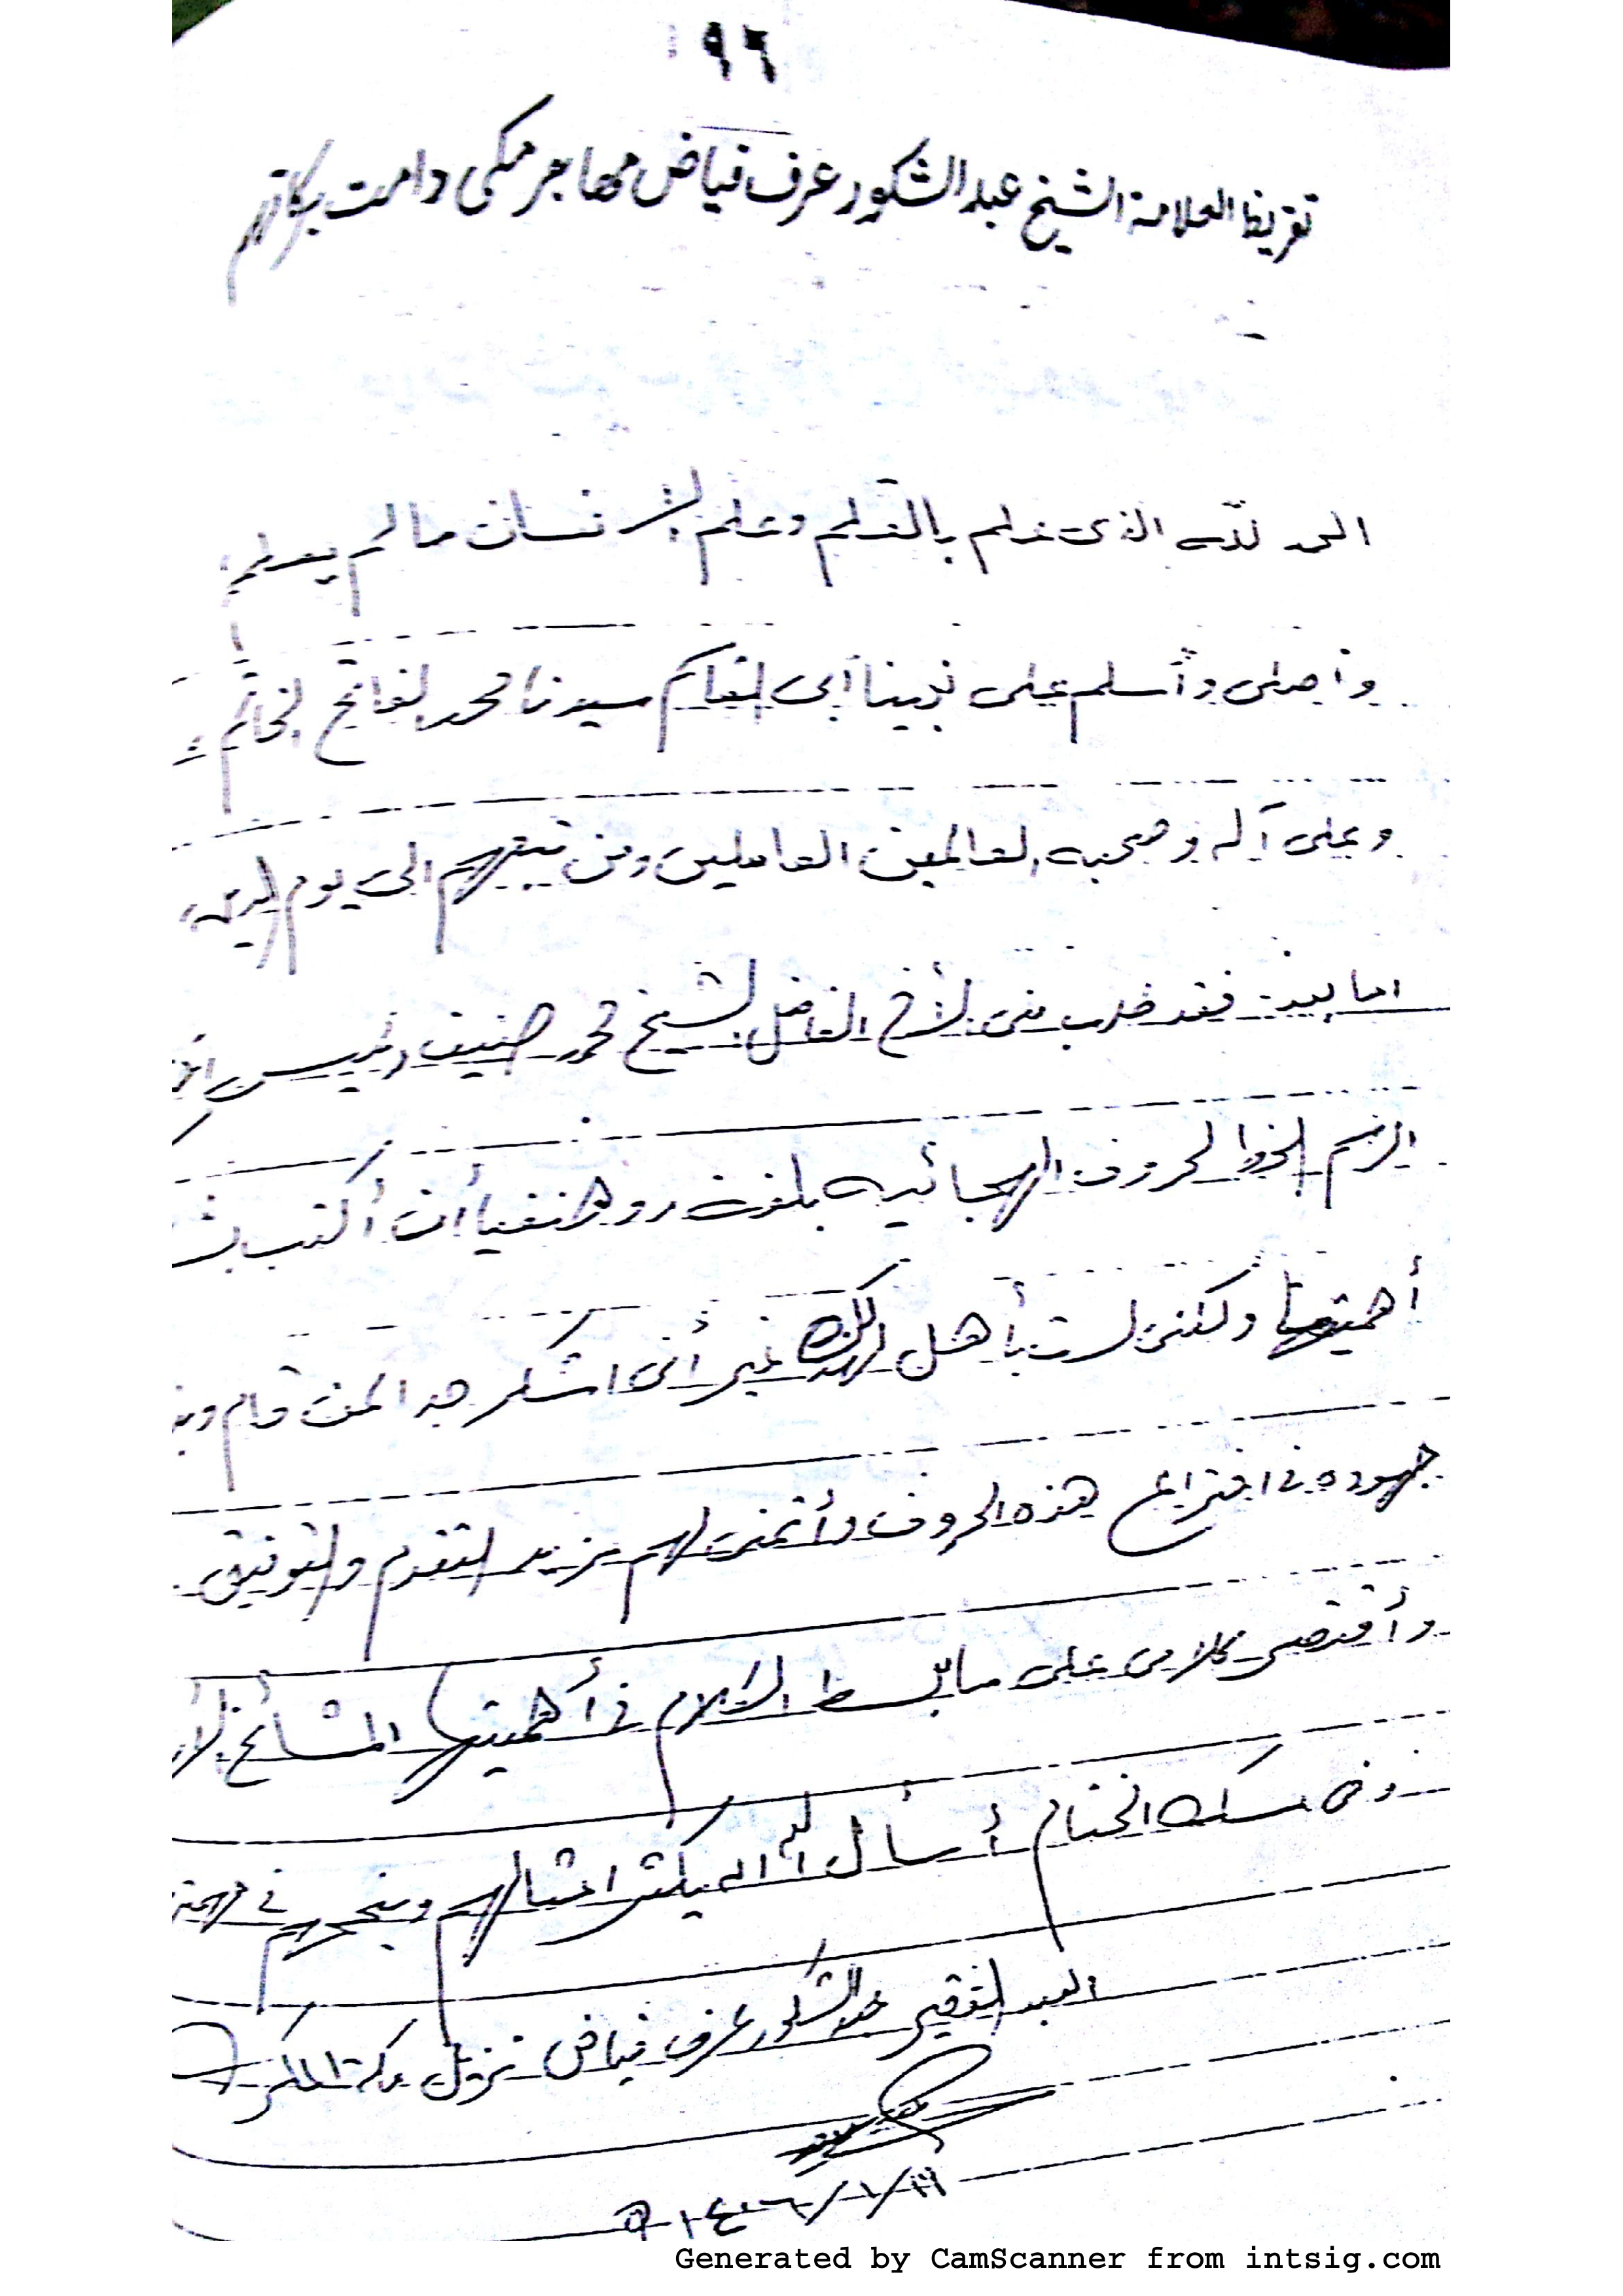 ١٩٦
تقريظ العلامة الشيخ عبد الشكور عرف فياض مهاجر مكى دامت بركاتهم
الحمد لله الذى علم بالقلم وعلم الإنسان مالم يعلم،
وأصلى وأسلم على نبينا أبى القاسم سيدنا محمد الفاتح الخاتم
وعلى آله وصحبه العالمين العاملين ومن تبعهم الى يوم الدين،
اما بعد: فقد طلب منى الأخ الفاضل الشيخ محمد حنيف رئيس
الرسم الخط الحروف الهجائيه بلغت روهنغيا أن أكتب
أهميتها ولكنى لست بأهل لذلك غير أنى اشكر جدا لمن قام
جهوده فى اختراع هذه الحروف وأتمنى لهم مزيد التقدم والتوفيق.
وأقتصر كلامى على ما بسط الكلام فى أهميتها المشائخ
وفى مسك الختام أسأل الله ان يكثر امثالهم وينجحهم فى
العبد الفقير عبد الشكور عرف فياض نزيل مكة المكرمة
١٤٣٦/١/١١ه
Generated by CamScanner from intsig.com